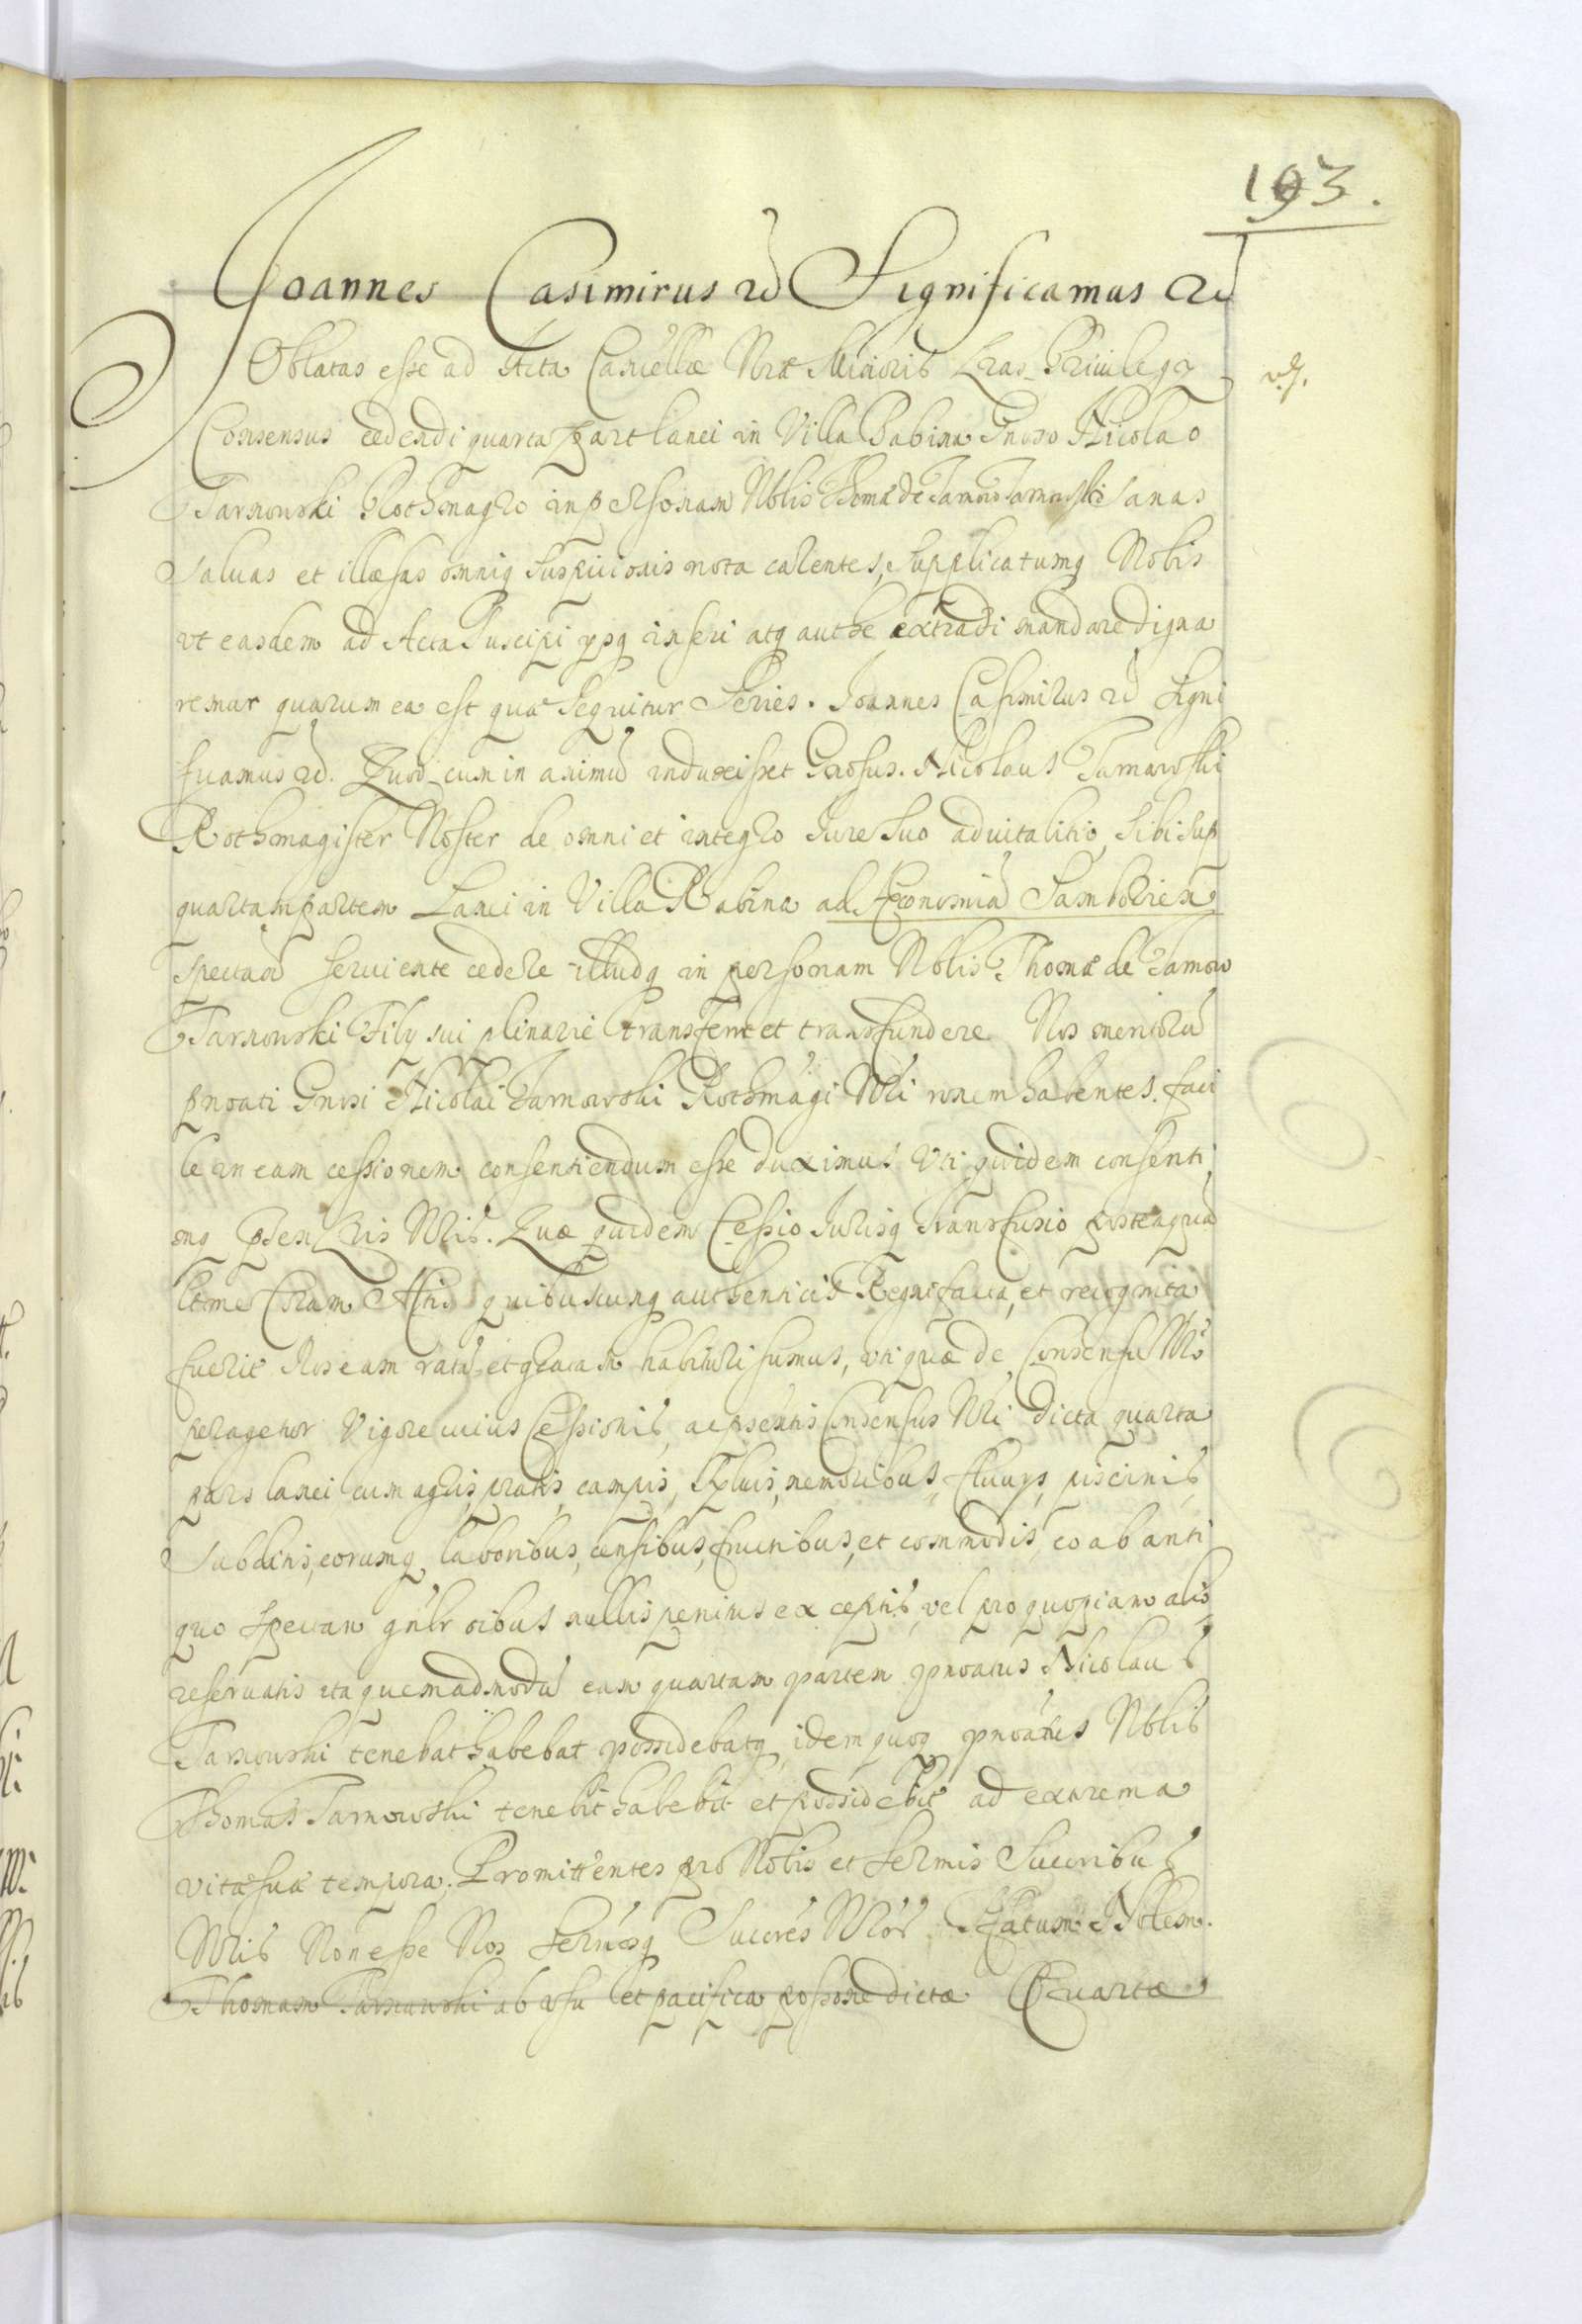 193.
Joannes Casimirus etc Significamus etc
Oblatas esse ad Acta Cancellae Nrae Minoris Lras Priuilegy
Consensus cedendi quarta part lanei in Villa Babina Gnoso Nicolao
Tarnowski Rothmagro in personam Nblis Thomae de Tarnow Tarnowski Sanas
saluas et illaesas omniq suspicionis nota carentes, supplicatumq Nobis
vt easdem ad Acta suscipi ysq inseri atq authe extradi mandare digna
remur quarum ea est quae sequitur Series. Joannes Casimirus etc Signi
ficamus etc. Quod cum in animu induxisset Gnosus. Nicolaus Tarnowski
Rothmagister Noster de omni et integro Jure suo aduitalitio, sibi sup
quartam partem Lanei in Villa Babina ad Aeconomia Samborien
spectan seruiente cedere illudq in personam Nblis Thomae de Tarnow
Tarnowski Fily sui plinarie transferre et transfundere. Nos meritoru
pnoati Gnosi Nicolai Tarnowski Rothmagi Nri ronem habentes. faci
le in eam cessionem consentiendum esse duximus vti quidem consenti
mq psen Lris Nris. Quae quidem Cessio Jurisq transfusio posteaqua
ltme Coram Actis quibuscunq authenticis Regni facta, et recognita
fuerit Nos eam rata et gratam habituri sumus, vti quae de Consensu Nro
peragetur Vigore cuius Cessionis, ac psentis Consensus Nri dicta quarta
pars lanei cum agris, pratis, campis, syluis, nemoribus, fluuys, piscinis
Subditis, eorumq laboribus, censibus, fructibus, et commodis eo ab anti
quo spectan gnlr oibus nullis penitus exceptis, vel pro quopiam alio
reseruatis ita quemadmodu eam quartam partem pnoatus Nicolaus
Tarnowski tenebat habebat possidebatq idem quoq pnoatus Nblis
Thomas Tarnowski tenebit habebit et possidebit ad extrema
vitae suae tempora. Promittentes pro Nobis et Sermis Succoribus
Nris Non esse Nos Sermosq Succores Nros Nblem.
Thomam Tarnowski ab vsu et pacifica possone dictae Quartae